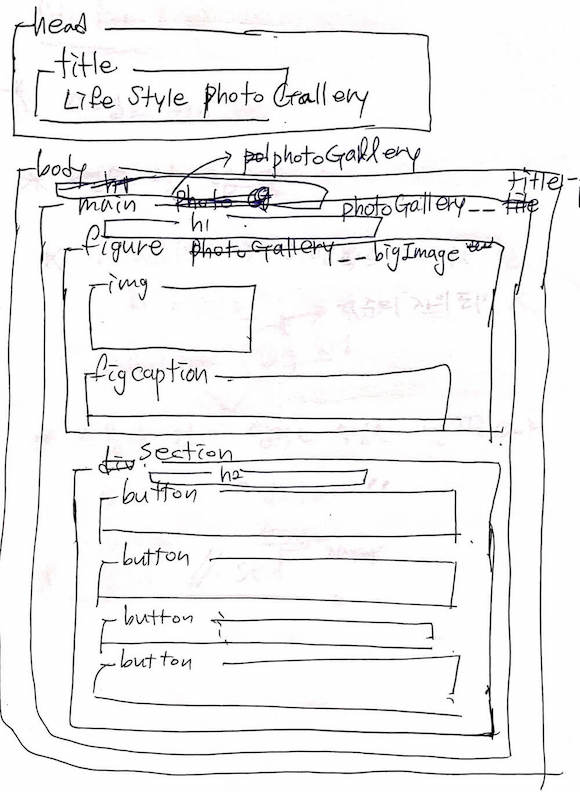 head
title
Life Style photo Gallery
body
photoGallery
title
main
photoGallery__
h1
figure photoGallery__bigImage
img
figcaption
section
h2
button
button
button
button